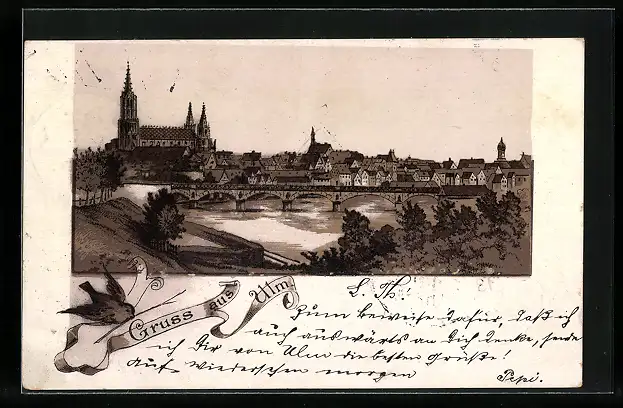 Gruss aus Ulm.
L. Th!
Zum beweise dafür, daß ich
auch auswärts an Dich denke, sende
ich Dir von Ulm die besten Grüße!
Auf wiedersehen morgen
Pepi.